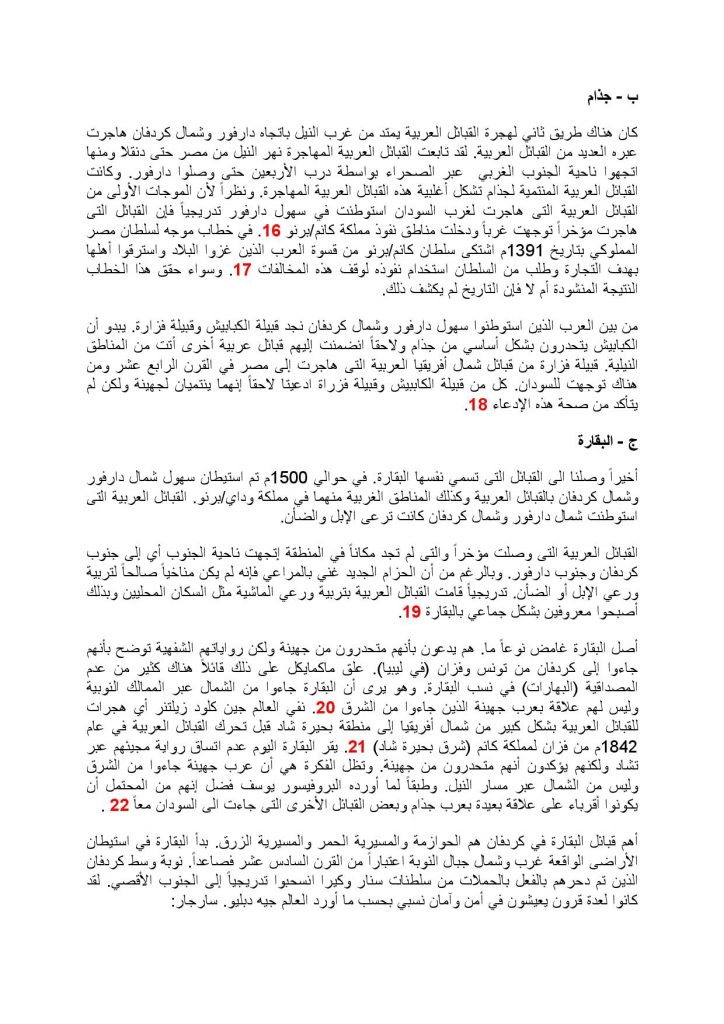 ب - جذام
كان هناك طريق ثاني لهجرة القبائل العربية يمتد من غرب النيل باتجاه دارفور وشمال كردفان هاجرت
عبره العديد من القبائل العربية. لقد تابعت القبائل العربية المهاجرة نهر النيل من مصر حتى دنقلا ومنها
اتجهوا ناحية الجنوب الغربي عبر الصحراء بواسطة درب الأربعين حتى وصلوا دارفور. وكانت
القبائل العربية المنتمية لجذام تشكل أغلبية هذه القبائل العربية المهاجرة. ونظراً لأن الموجات الأولى من
القبائل العربية التى هاجرت لغرب السودان استوطنت في سهول دارفور تدريجياً فإن القبائل التى
هاجرت مؤخراً توجهت غرباً ودخلت مناطق نفوذ مملكة كانم/برنو 16. في خطاب موجه لسلطان مصر
المملوكي بتاريخ 1391م اشتكى سلطان كانم/برنو من قسوة العرب الذين غزوا البلاد واسترقوا أهلها
بهدف التجارة وطلب من السلطان استخدام نفوذه لوقف هذه المخالفات 17. وسواء حقق هذا الخطاب
النتيجة المنشودة أم لا فإن التاريخ لم يكشف ذلك.
من بين العرب الذين استوطنوا سهول دارفور وشمال كردفان نجد قبيلة الكبابيش وقبيلة فزارة. يبدو أن
الكبابيش يتحدرون بشكل أساسي من جذام ولاحقاً انضمنت إليهم قبائل عربية أخرى أتت من المناطق
النيلية. قبيلة فزارة من قبائل شمال أفريقيا العربية التى هاجرت إلى مصر في القرن الرابع عشر ومن
هناك توجهت للسودان. كل من قبيلة الكابييش وقبيلة فزراة ادعيتا لاحقاً إنهما ينتميان لجهينة ولكن لم
يتأكد من صحة هذه الإدعاء 18.
ج - البقارة
أخيراً وصلنا الى القبائل التى تسمي نفسها البقارة. في حوالي 1500م تم استيطان سهول شمال دارفور
وشمال كردفان بالقبائل العربية وكذلك المناطق الغربية منهما في مملكة وداي/برنو. القبائل العربية التى
استوطنت شمال دارفور وشمال كردفان كانت ترعى الإبل والضأن.
القبائل العربية التى وصلت مؤخراً والتى لم تجد مكاناً في المنطقة إتجهت ناحية الجنوب أي إلى جنوب
كردفان وجنوب دارفور. وبالرغم من أن الحزام الجديد غني بالمراعي فإنه لم يكن مناخياً صالحاً لتربية
ورعي الإبل أو الضأن. تدريجياً قامت القبائل العربية بتربية ورعي الماشية مثل السكان المحليين وبذلك
أصبحوا معروفين بشكل جماعي بالبقارة 19.
أصل البقارة غامض نوعاً ما. هم يدعون بأنهم متحدرون من جهينة ولكن رواياتهم الشفهية توضح بأنهم
جاءوا إلى كردفان من تونس وفزان (في ليبيا). علق ماكمايكل على ذلك قائلاً هناك كثير من عدم
المصداقية (البهارات) في نسب البقارة. وهو يرى أن البقارة جاءوا من الشمال عبر الممالك النوبية
وليس لهم علاقة بعرب جهينة الذين جاءوا من الشرق 20. نفي العالم جين كلود زيلتنر أي هجرات
للقبائل العربية بشكل كبير من شمال أفريقيا إلى منطقة بحيرة شاد قبل تحرك القبائل العربية في عام
1842م من فزان لمملكة كانم (شرق بحيرة شاد) 21. يقر البقارة اليوم عدم اتساق رواية مجيئهم عبر
تشاد ولكنهم يؤكدون أنهم متحدرون من جهينة. وتظل الفكرة هي أن عرب جهينة جاءوا من الشرق
وليس من الشمال عبر مسار النيل. وطبقاً لما أورده البروفيسور يوسف فضل إنهم من المحتمل أن
يكونوا أقرباء على علاقة بعيدة بعرب جذام وبعض القبائل الأخرى التى جاءت الى السودان معاً 22 .
أهم قبائل البقارة في كردفان هم الحوازمة والمسيرية الحمر والمسيرية الزرق. بدأ البقارة في استيطان
الأراضى الواقعة غرب وشمال جبال النوبة اعتباراً من القرن السادس عشر فصاعداً. نوبة وسط كردفان
الذين تم دحرهم بالفعل بالحملات من سلطنات سنار وكيرا انسحبوا تدريجياً إلى الجنوب الأقصي. لقد
كانوا لعدة قرون يعيشون في أمن وآمان نسبي بحسب ما أورد العالم جيه دبليو. سارجار: